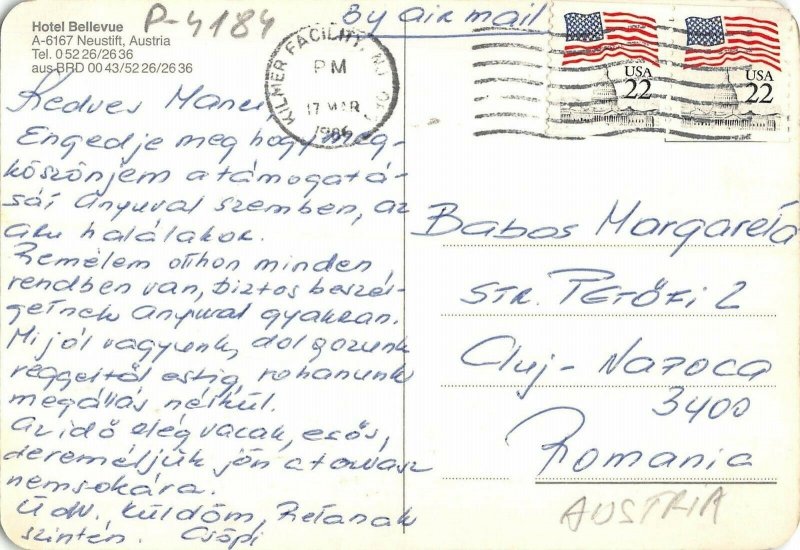 Hotel Bellevue
A-6167 Neustift, Austria
Tel. 0 52 26/26 36
aus BRD 00 43/52 26/26 36
P-4184
By air mail
KILMER FACILITY, NJ
PM
17 MAR
1986
USA
22
USA
22
Kedves Manci
Engedje meg hogy meg-
köszönjem a támogatá-
sát anyuval szemben, az
aku halálakor.
Remélem otthon minden
rendben van, biztos beszél-
getnek anyuval gyakran.
Mi jól vagyunk, dolgozunk
reggeltől estig, rohanunk
megállás nélkül.
Az idő elég vacak, esős,
de reméljük jön a tavasz
nemsokára.
Üdv. küldöm, Retanak
szintén. Csöpi
Babos Margareta
STR. PETŐFI 2
Cluj-Napoca
3400
Romania
AUSTRIA